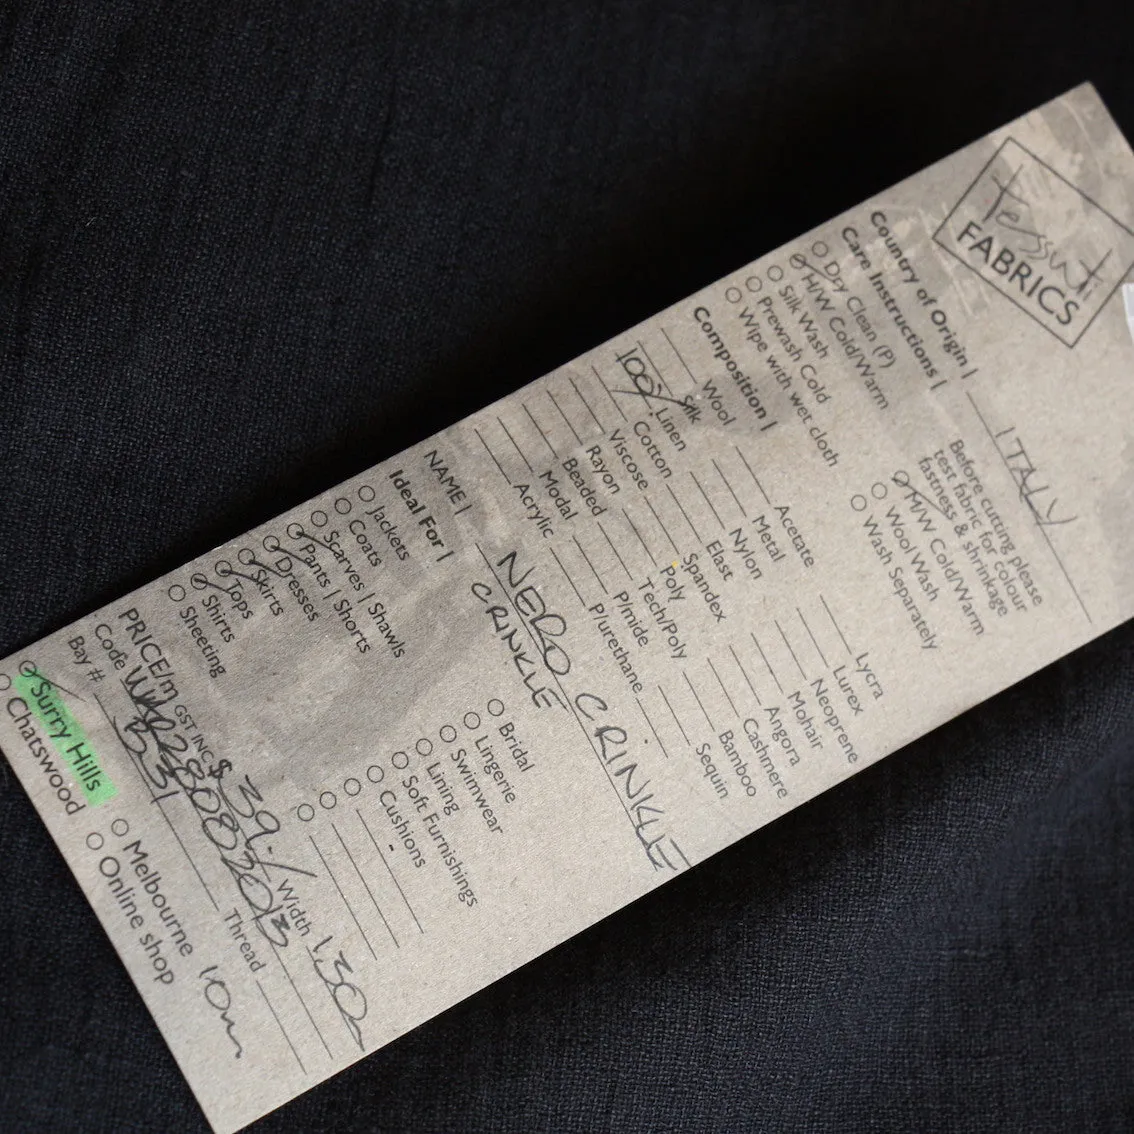 Tessuti
FABRICS
Country of Origin | ITALY
Care Instructions |
Before cutting please
test fabric for colour
fastness & shrinkage
Dry Clean (P)
H/W Cold/Warm
Silk Wash
Prewash Cold
Wipe with wet cloth
M/W Cold/Warm
Wool Wash
Wash Separately
Composition |
Wool
Silk
100% Linen
Cotton
Viscose
Rayon
Beaded
Modal
Acrylic
Acetate
Metal
Nylon
Elast
Spandex
Poly
Tech/Poly
P/mide
P/urethane
Lycra
Lurex
Neoprene
Mohair
Angora
Cashmere
Bamboo
Sequin
NAME | NERO CRINKLE
CRINKLE
Ideal For |
Jackets
Coats
Scarves | Shawls
Pants | Shorts
Dresses
Skirts
Tops
Shirts
Sheeting
Bridal
Lingerie
Swimwear
Lining
Soft Furnishings
Cushions
PRICE/m GST INC $ 39./ Width 1.30m
Code
Bay # Thread
Surry Hills
Chatswood
Melbourne
Online shop
10m